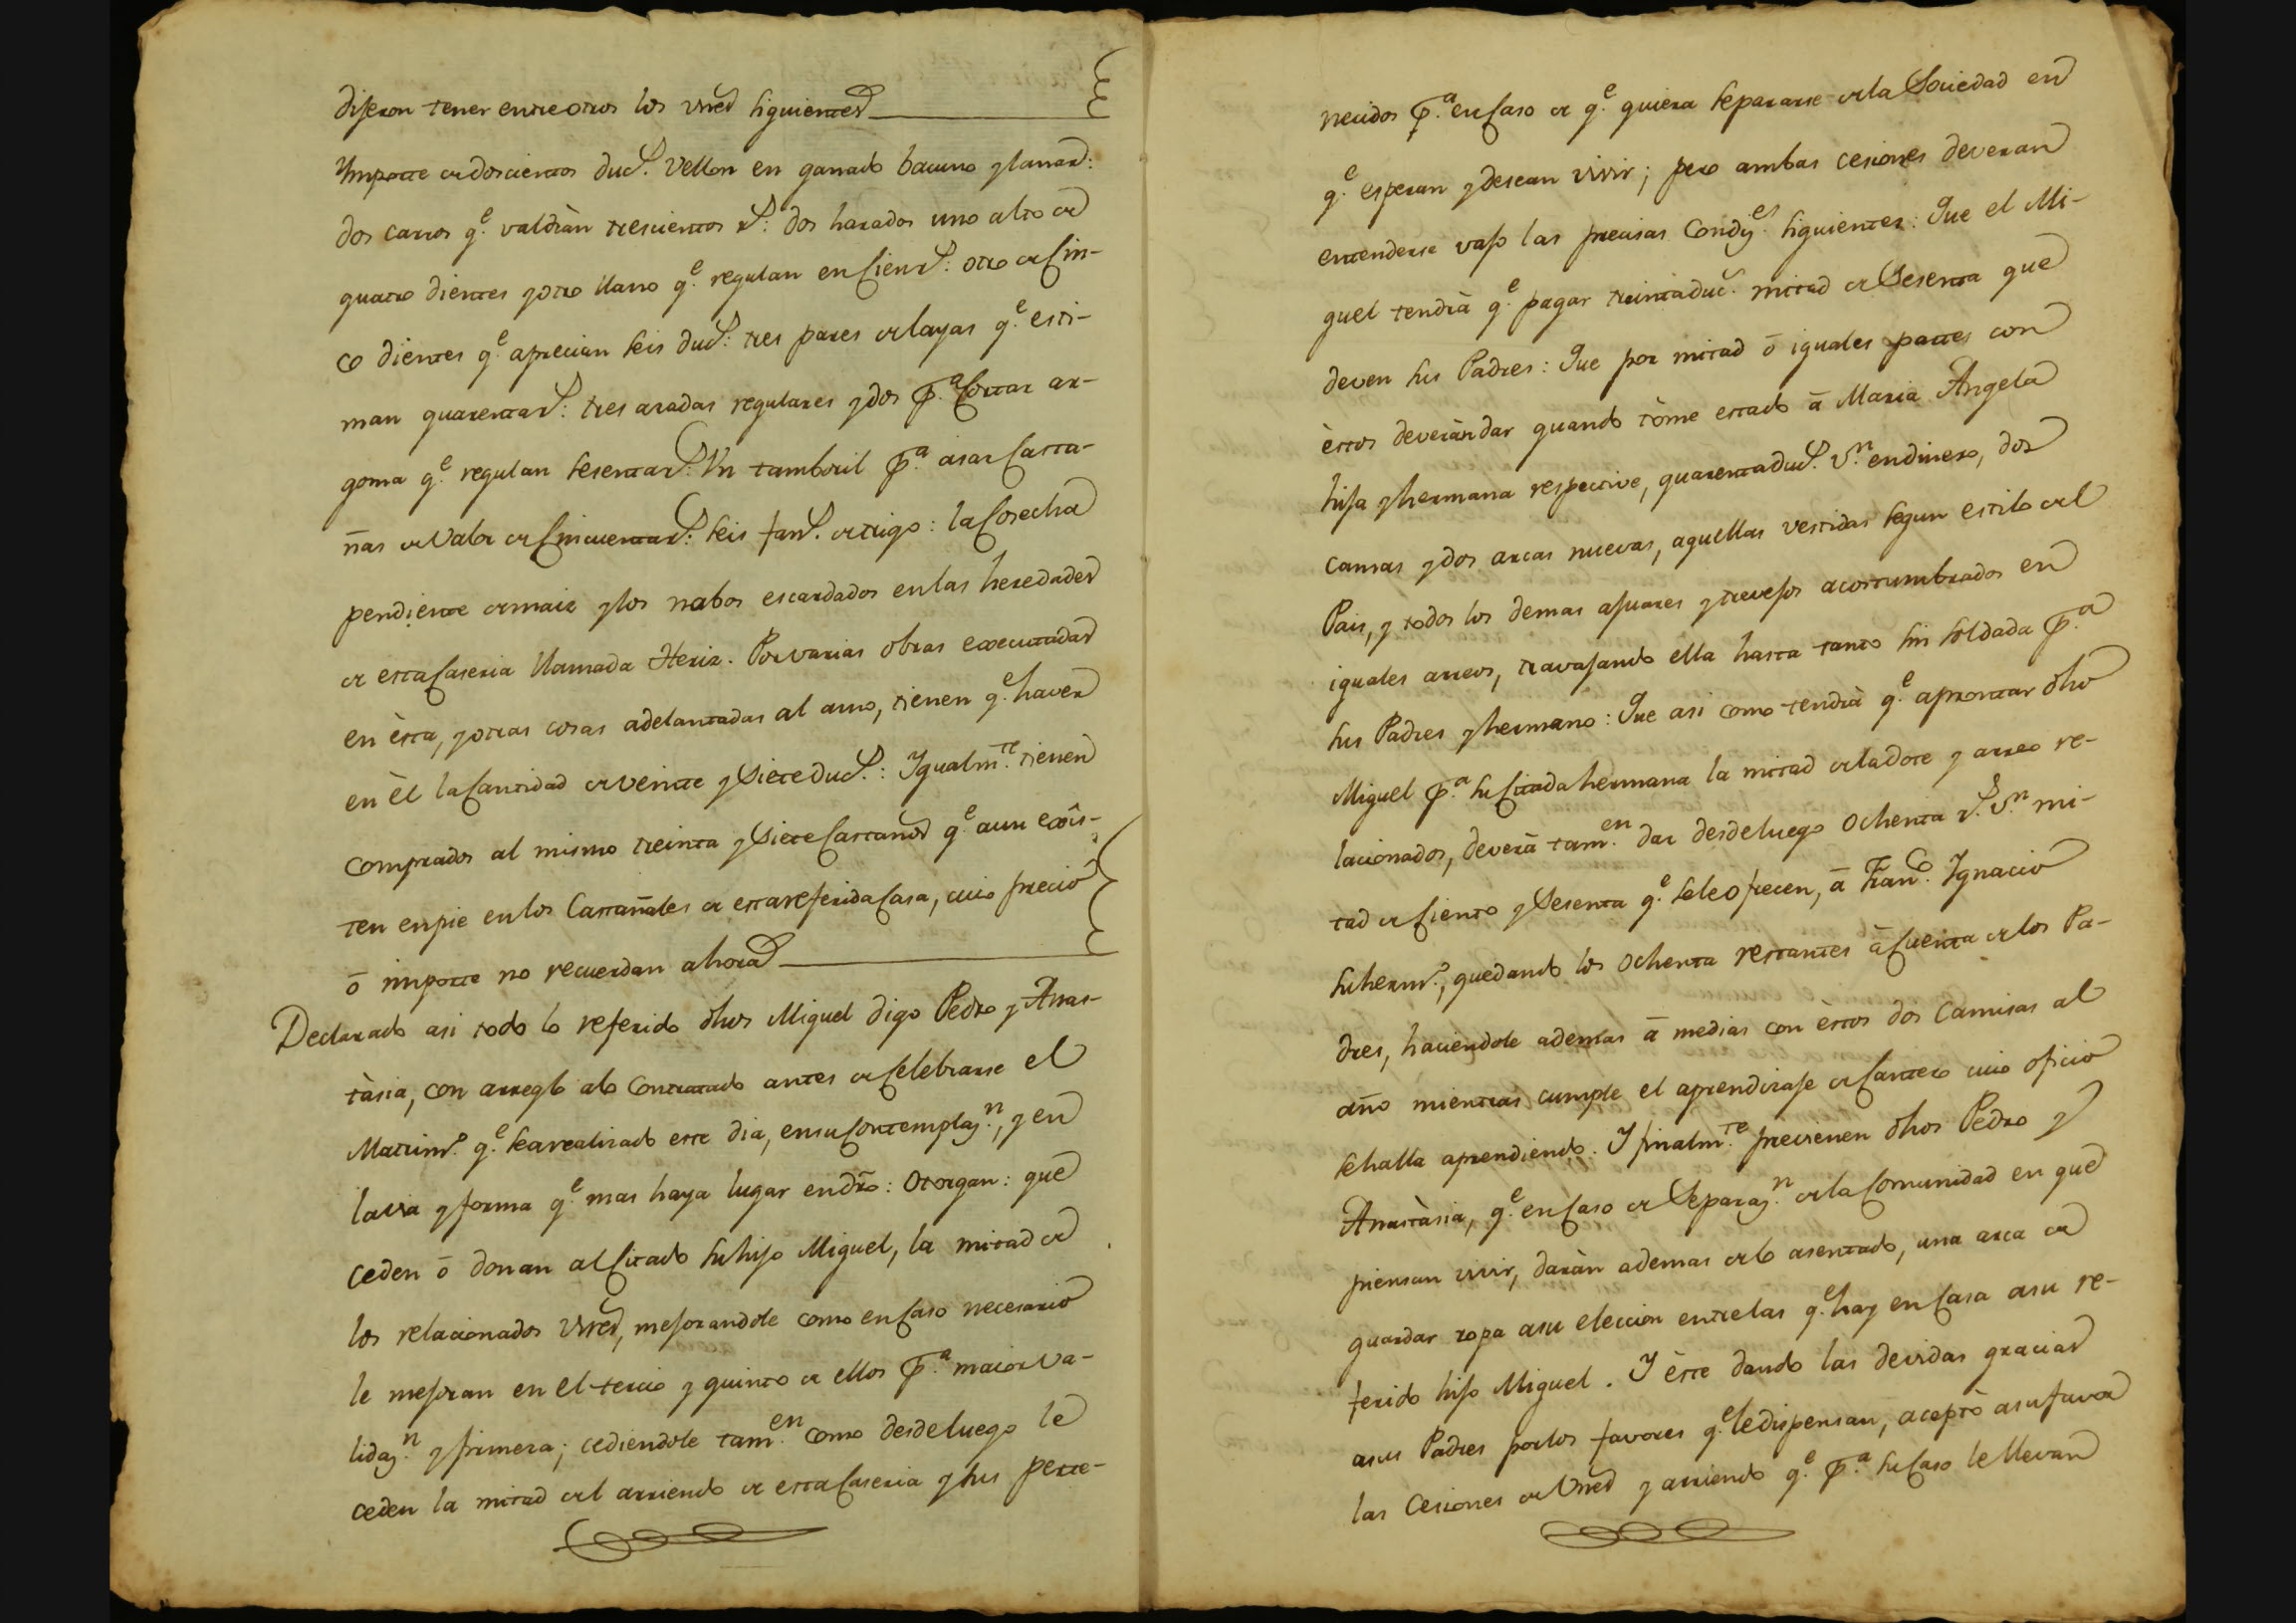 dijeron tener entre otros los vnes siguientes
Ymporte de doscientos duc.s vellon en ganado bacuno y lanar:
dos carros q.e valdràn trescientos r.s: dos harados uno alto de
quatro dientes y otro llano q.e regulan en cien r.s: otro de cin-
co dientes q.e aprecian seis duc.s: tres pares de layas q.e esti-
man quarenta r.s: tres azadas regulares y dos p.a cortar ar-
goma q.e regulan sesenta r.s: Un tamboril p.a asar casta-
ñas de valor de cincuenta r.s: seis fan.s de trigo: la cosecha
pendiente de maiz y los nabos escardados en las heredades
de esta caseria llamada Heriz. Por varias obras executadas
en èsta, y otras cosas adelantadas al amo, tienen q.e haver
en èl la cantidad de veinte y siete duc.s: Igualm.te tienen
comprados al mismo treinta y siete castaños q.e aun exîs-
ten en pie en los castañales de esta referida casa, cuio precio
ō importe no recuerdan ahora
Declarado asi todo lo referido dhos Miguel digo Pedro y Anas-
tàsia, con arreglo alo contratado antes de celebrarse el
Matrim.o q.e se a realizado este dia, en su contemplaz.n, y en
la via y forma q.e mas haya lugar en dro: otorgan: que
ceden ō donan al citado su hijo Miguel, la mitad de
los relacionados vnes, mejorandole como en caso necesario
le mejoran en el tercio y quinto de ellos p.a maior va-
lidaz.n y firmeza; cediendole tam.en como desde luego le
ceden la mitad del arriendo de esta caseria y sus perte-
necidos p.a en caso de q.e quiera separarse de la Sociedad en
q.e esperan y desean vivir; pero ambas cesiones deveran
entenderse vajo las precisas condiz.es siguientes: Que el Mi-
guel tendrà q.e pagar treinta duc.s mitad de sesenta que
deven sus Padres: Que por mitad ō iguales partes con
èstos deveràn dar quando tòme estado ā Maria Angela
hija y hermana respective, quarenta duc.s v.n en dinero, dos
camas y dos arcas nuevas, aquellas vestidas segun estilo del
Pais, y todos los demas ajuares y trevejos acostumbrados en
iguales arreos, travajando ella hasta tanto sin soldada p.a
sus Padres y hermano: Que asi como tendrà q.e aprontar dho
Miguel p.a su citada hermana la mitad de la dote y arreo re-
lacionados, deverà tam.en dar desde luego ochenta r.s v.n mi-
tad de ciento y sesenta q.e se le ofrecen, ā Fran.co Ygnacio
su herm.o, quedando los ochenta restantes à cuenta de los Pa-
dres, haciendole ademas ā medias con èstos dos camisas al
año mientras cumple el aprendizaje de cantero cuio oficio
se halla aprendiendo. I finalm.te previenen dhos Pedro y
Anastàsia, q.e en caso de separaz.n de la comunidad en que
piensan vivir, daràn ademas de lo asentado, una arca de
guardar ropa a su eleccion entre las q.e hay en casa a su re-
ferido hijo Miguel. I èste dando las devidas gracias
a sus Padres por los favores q.e le dispensan, aceptò a su favor
las cesiones de vnes y arriendo q.e p.a su caso le llevan